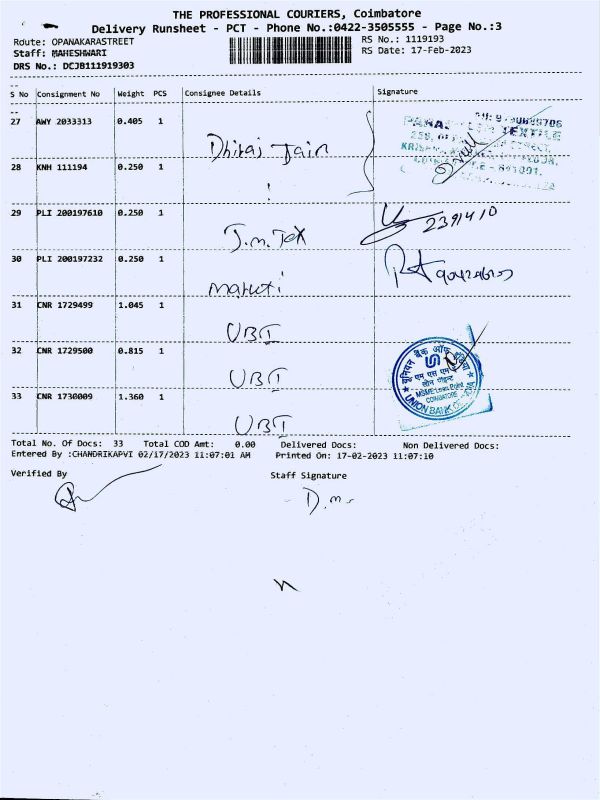 THE PROFESSIONAL COURIERS, Coimbatore
Delivery Runsheet - PCT - Phone No.:0422-3505555 - Page No.:3
Route: OPANAKARASTREET
RS No.: 1119193
Staff: MAHESHWARI
RS Date: 17-Feb-2023
DRS No.: DCJB111919303
S No Consignment No Weight PCS Consignee Details Signature
27 AWY 2033313 0.405 1
Dhiraj Jain
TEXTILE
28 KNH 111194 0.250 1
29 PLI 200197610 0.250 1
J.m. Tex
2391410
30 PLI 200197232 0.250 1
maruti
31 CNR 1729499 1.045 1
UBI
32 CNR 1729500 0.815 1
UBI
यूनियन बैंक ऑफ इंडिया
एम एस एम ई
लोन पॉइन्ट
MSME Loan Point
COIMBATORE
UNION BANK OF INDIA
33 CNR 1730009 1.360 1
UBI
Total No. Of Docs: 33 Total COD Amt: 0.00 Delivered Docs: Non Delivered Docs:
Entered By :CHANDRIKAPVI 02/17/2023 11:07:01 AM Printed On: 17-02-2023 11:07:10
Verified By Staff Signature
D.m